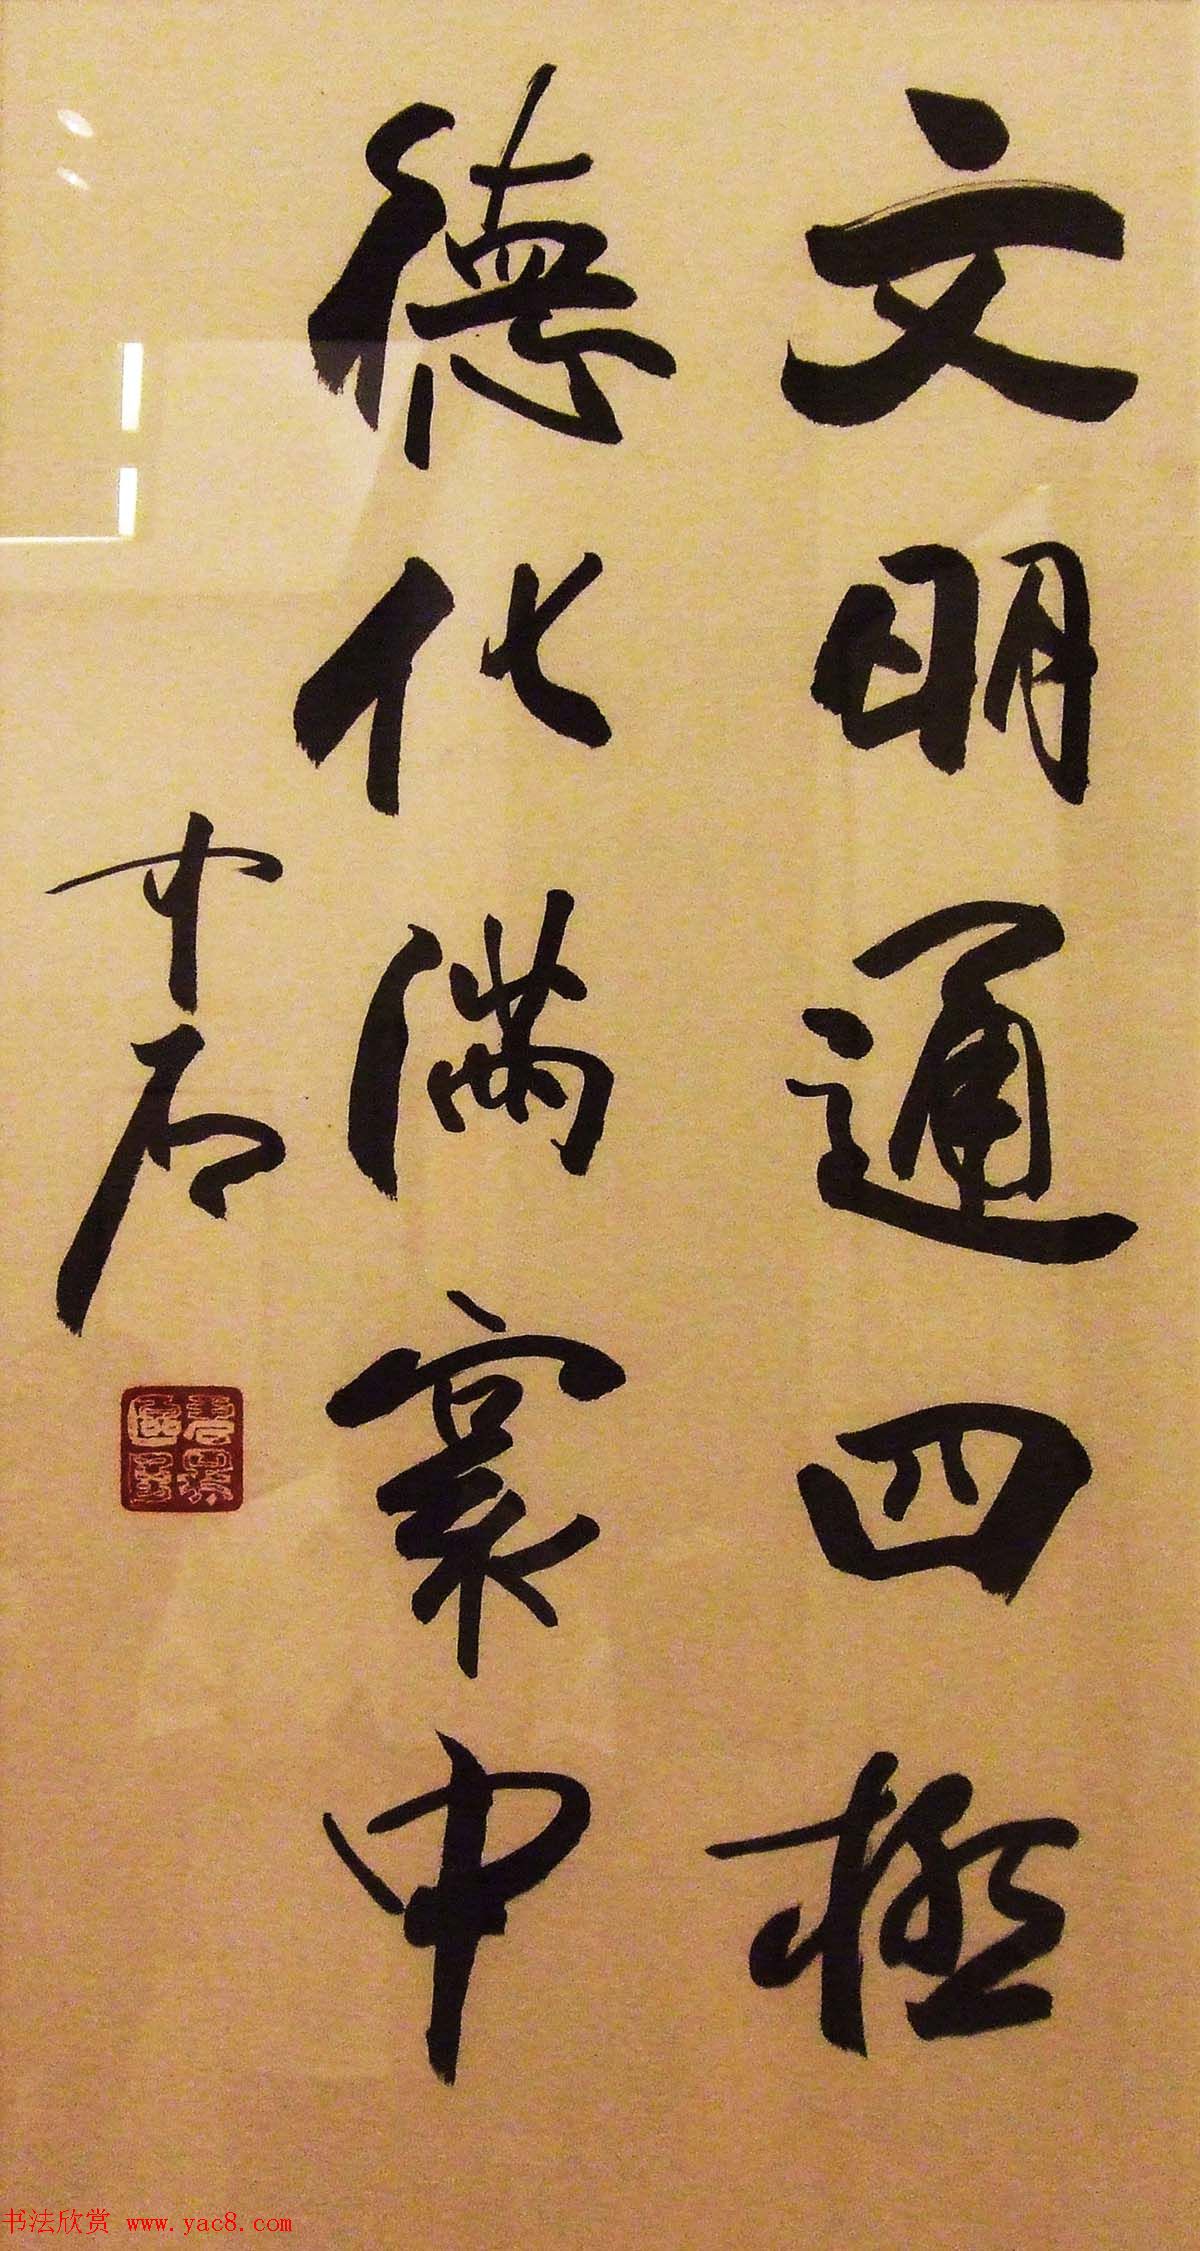 文明通四極
德化满寰中
中石
书法欣赏 www.yac8.com